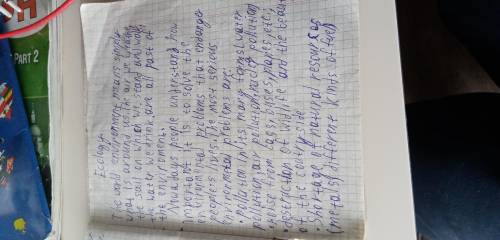 PART 2
Ecology
The world environment means simply
what is around us. The air we breathe,
the soil on which we stand and walk,
the water we drink are all part of
the environment.
Nowadays people understand how
important it is to solve the
environmental problems that endanger
people's lives. The most serious
environmental problems are:
• pollution in its many forms (water
pollution, air pollution, nuclear pollution)
• noise from cars, buses, planes, etc.
• destruction of wildlife and the beauty
of the country side
• shortage of natural resources
(metals, different kinds of fuel)